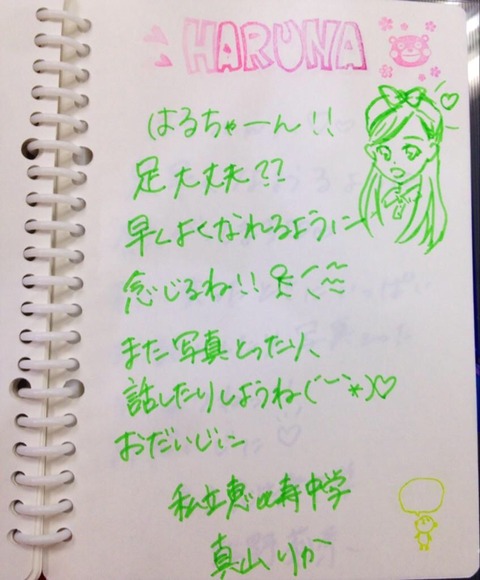 HARUNA
はるちゃーん!!
足大丈夫??
早くよくなれるように
念じるね!!
また写真とったり、
話したりしようね(´˘`*)♡
おだいじに
私立恵比寿中学
真山りか